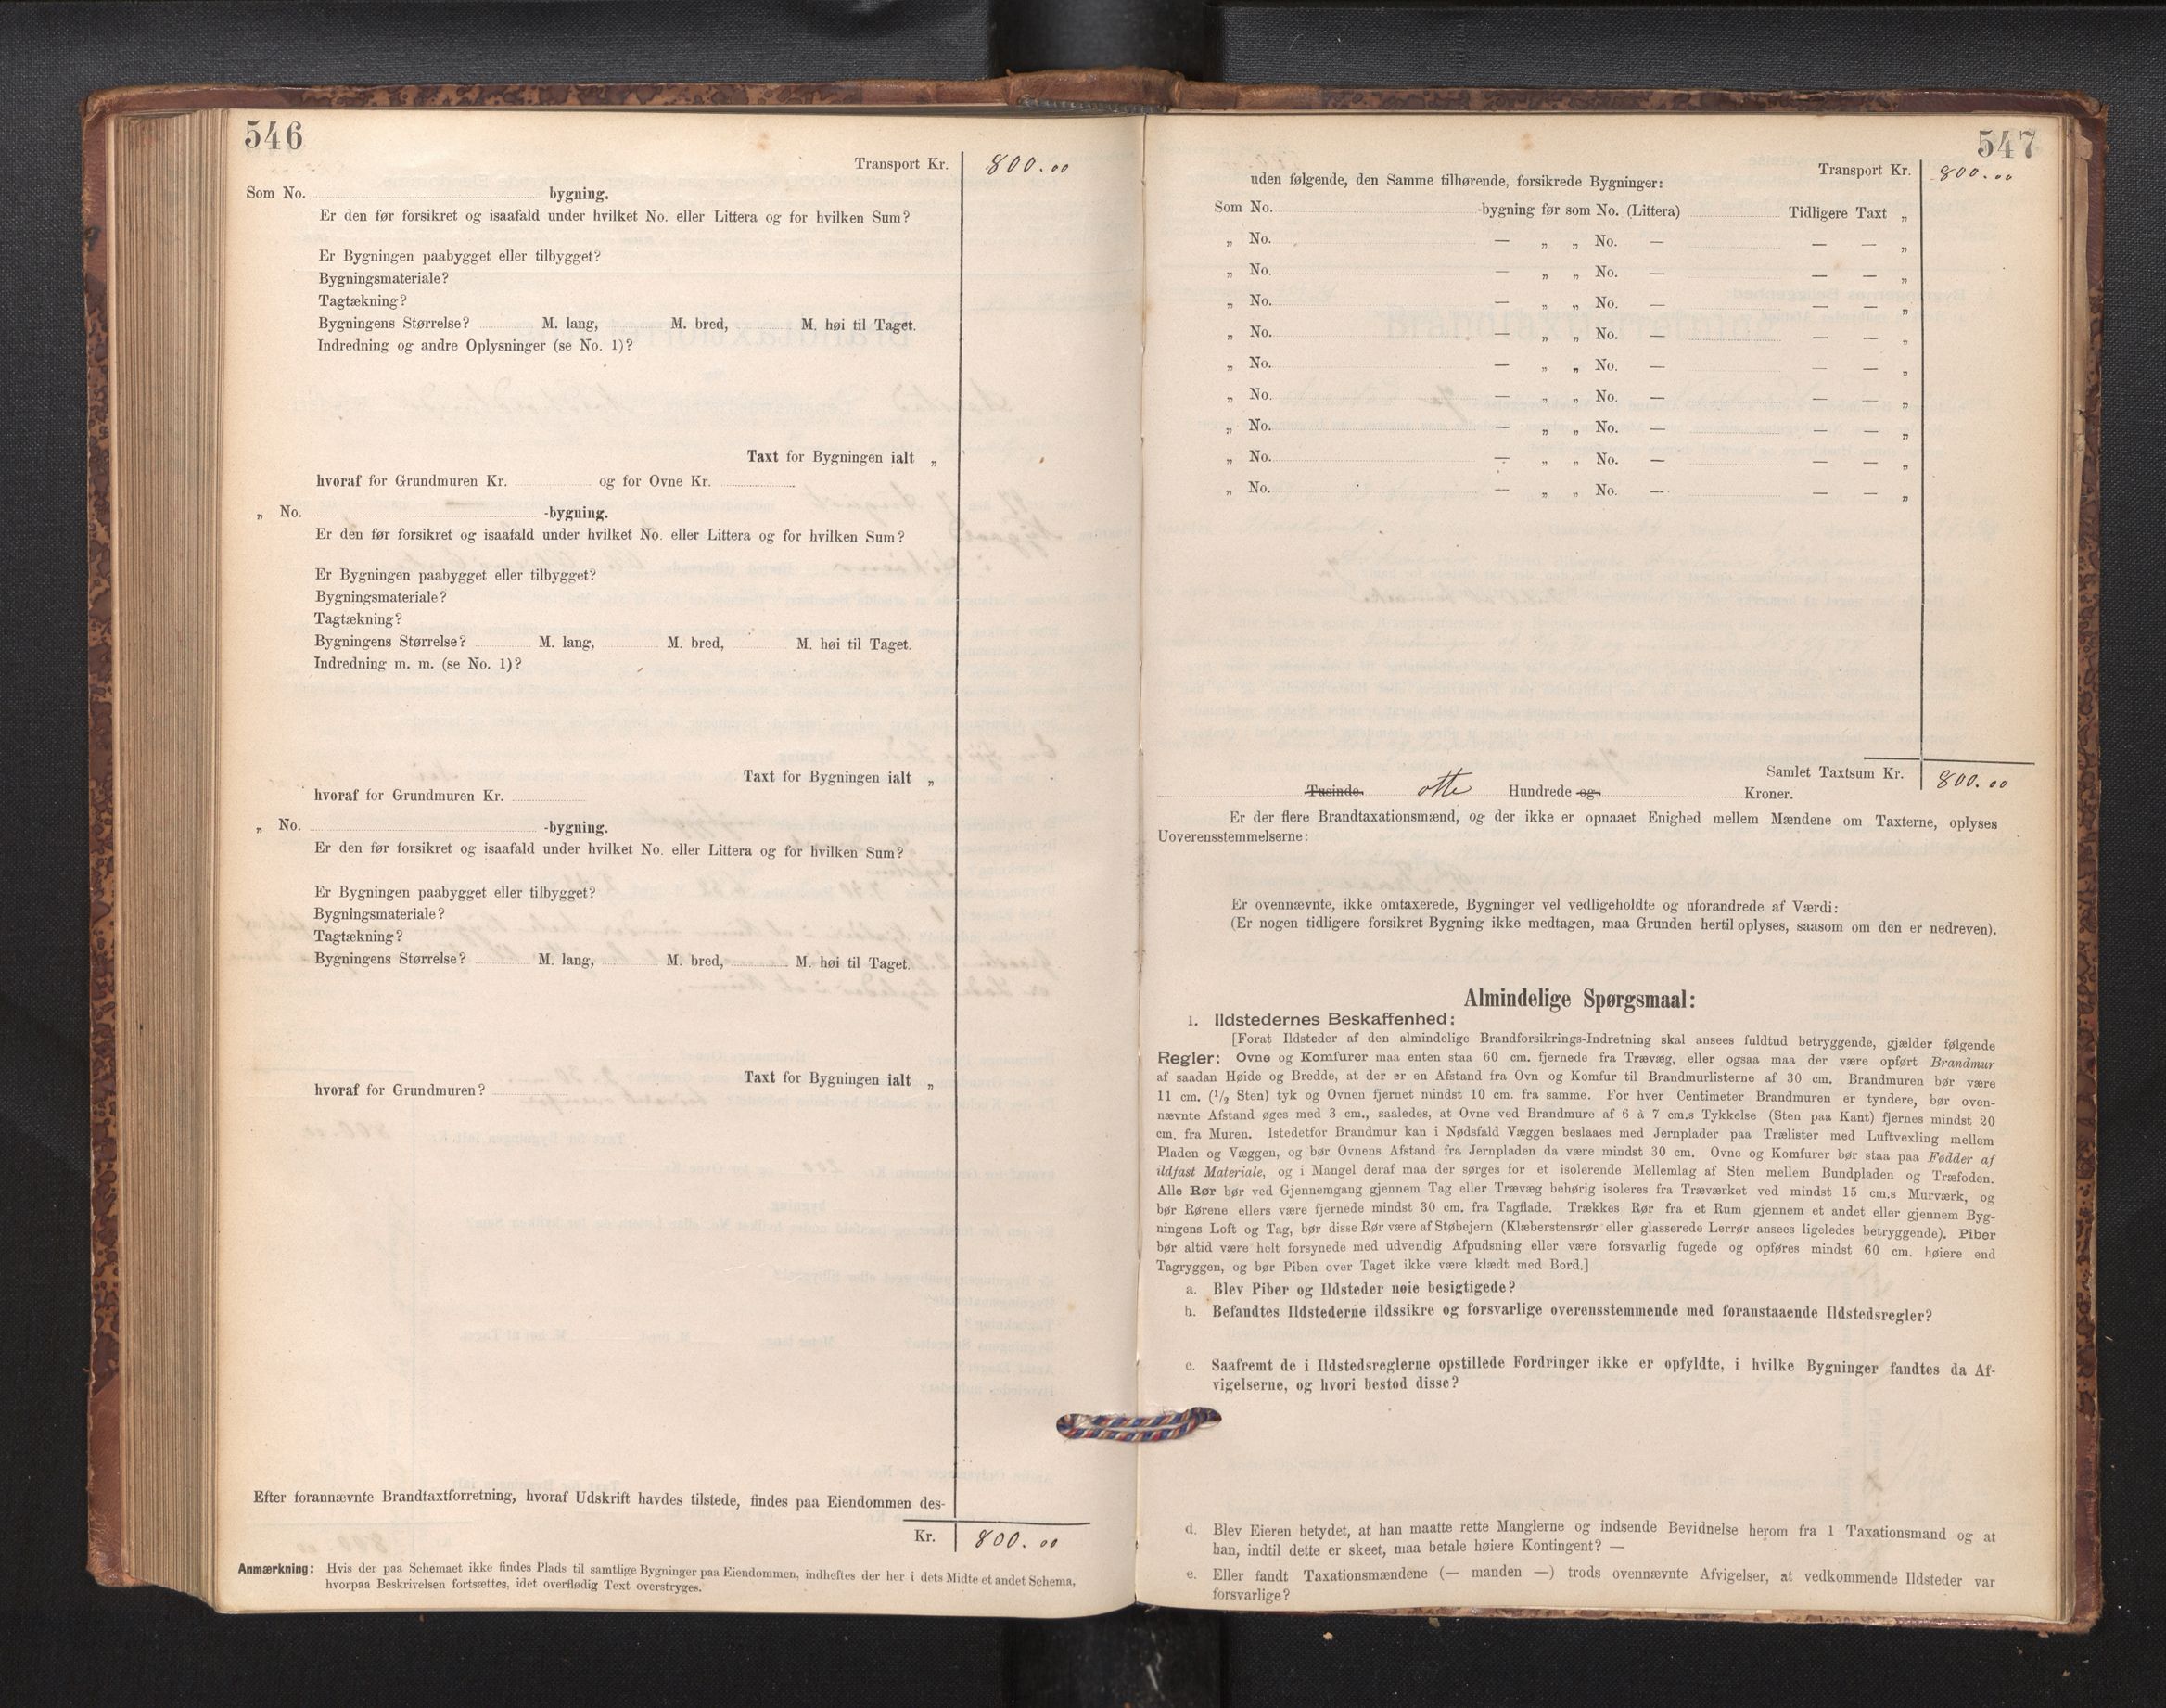 546
Transport Kr. 800.00
Som No. bygning.
Er den før forsikret og isaafald under hvilket No. eller Littera og for hvilken Sum?
Er Bygningen paabygget eller tilbygget?
Bygningsmateriale?
Tagtækning?
Bygningens Størrelse? M. lang, M. bred, M. høi til Taget.
Indredning og andre Oplysninger (se No. 1)?
Taxt for Bygningen ialt „
hvoraf for Grundmuren Kr. og for Ovne Kr.
„ No. -bygning.
Er den før forsikret og isaafald under hvilket No. eller Littera og for hvilken Sum?
Er Bygningen paabygget eller tilbygget?
Bygningsmateriale?
Tagtækning?
Bygningens Størrelse? M. lang, M. bred, M. høi til Taget.
Indredning m. m. (se No. 1)?
Taxt for Bygningen ialt „
hvoraf for Grundmuren Kr.
„ No. -bygning.
Er den før forsikret og isaafald under hvilket No. eller Littera og for hvilken Sum?
Er Bygningen paabygget eller tilbygget?
Bygningsmateriale?
Tagtækning?
Bygningens Størrelse? M. lang, M. bred, M. høi til Taget.
Taxt for Bygningen ialt „
hvoraf for Grundmuren?
Efter forannævnte Brandtaxtforretning, hvoraf Udskrift havdes tilstede, findes paa Eiendommen des-
Kr. 800.00
Anmærkning: Hvis der paa Schemaet ikke findes Plads til samtlige Bygninger paa Eiendommen, indheftes der her i dets Midte et andet Schema,
hvorpaa Beskrivelsen fortsættes, idet overflødig Text overstryges.
547
Transport Kr. 800.00
uden følgende, den Samme tilhørende, forsikrede Bygninger:
Som No. -bygning før som No. (Littera) Tidligere Taxt „
„ No. — „ „ No. — — — „
„ No. — „ „ No. — — — „
„ No. — „ „ No. — — — „
„ No. — „ „ No. — — — „
„ No. — „ „ No. — — — „
„ No. — „ „ No. — — — „
„ No. — „ „ No. — — — „
„ No. — „ „ No. — — — „
„ No. — „ „ No. — — — „
Samlet Taxtsum Kr. 800.00
Tusinde otte Hundrede og Kroner.
Er der flere Brandtaxationsmænd, og der ikke er opnaaet Enighed mellem Mændene om Taxterne, oplyses
Uoverensstemmelserne:
Er ovennævnte, ikke omtaxerede, Bygninger vel vedligeholdte og uforandrede af Værdi:
(Er nogen tidligere forsikret Bygning ikke medtagen, maa Grunden hertil oplyses, saasom om den er nedreven).
Almindelige Spørgsmaal:
1. Ildstedernes Beskaffenhed:
[Forat Ildsteder af den almindelige Brandforsikrings-Indretning skal ansees fuldtud betryggende, gjælder følgende
Regler: Ovne og Komfurer maa enten staa 60 cm. fjernede fra Trævæg, eller ogsaa maa der være opført Brandmur
af saadan Høide og Bredde, at der er en Afstand fra Ovn og Komfur til Brandmurlisterne af 30 cm. Brandmuren bør være
11 cm. (1/2 Sten) tyk og Ovnen fjernet mindst 10 cm. fra samme. For hver Centimeter Brandmuren er tyndere, bør oven-
nævnte Afstand øges med 3 cm., saaledes, at Ovne ved Brandmure af 6 à 7 cm.s Tykkelse (Sten paa Kant) fjernes mindst 20
cm. fra Muren. Istedetfor Brandmur kan i Nødsfald Væggen beslaaes med Jernplader paa Trælister med Luftvexling mellem
Pladen og Væggen, og bør Ovnens Afstand fra Jernpladen da være mindst 30 cm. Ovne og Komfurer bør staa paa Fødder af
ildfast Materiale, og i Mangel deraf maa der sørges for et isolerende Mellemlag af Sten mellem Bundpladen og Træfoden.
Alle Rør bør ved Gjennemgang gjennem Tag eller Trævæg behørig isoleres fra Træværket ved mindst 15 cm.s Murværk, og
bør Rørene ellers være fjernede mindst 30 cm. fra Tagflade. Trækkes Rør fra et Rum gjennem et andet eller gjennem Byg-
ningens Loft og Tag, bør disse Rør være af Støbejern (Klæberstensrør eller glasserede Lerrør ansees ligeledes betryggende). Piber
bør altid være helt forsynede med udvendig Afpudsning eller være forsvarlig fugede og opføres mindst 60 cm. høiere end
Tagryggen, og bør Piben over Taget ikke være klædt med Bord.]
a. Blev Piber og Ildsteder nøie besigtigede?
b. Befandtes Ildstederne ildssikre og forsvarlige overensstemmende med foranstaaende Ildstedsregler?
c. Saafremt de i Ildstedsreglerne opstillede Fordringer ikke er opfyldte, i hvilke Bygninger fandtes da Af-
vigelserne, og hvori bestod disse?
d. Blev Eieren betydet, at han maatte rette Manglerne og indsende Bevidnelse herom fra 1 Taxationsmand og at
han, indtil dette er skeet, maa betale høiere Kontingent? —
e. Eller fandt Taxationsmændene (— manden —) trods ovennævnte Afvigelser, at vedkommende Ildsteder var
forsvarlige?